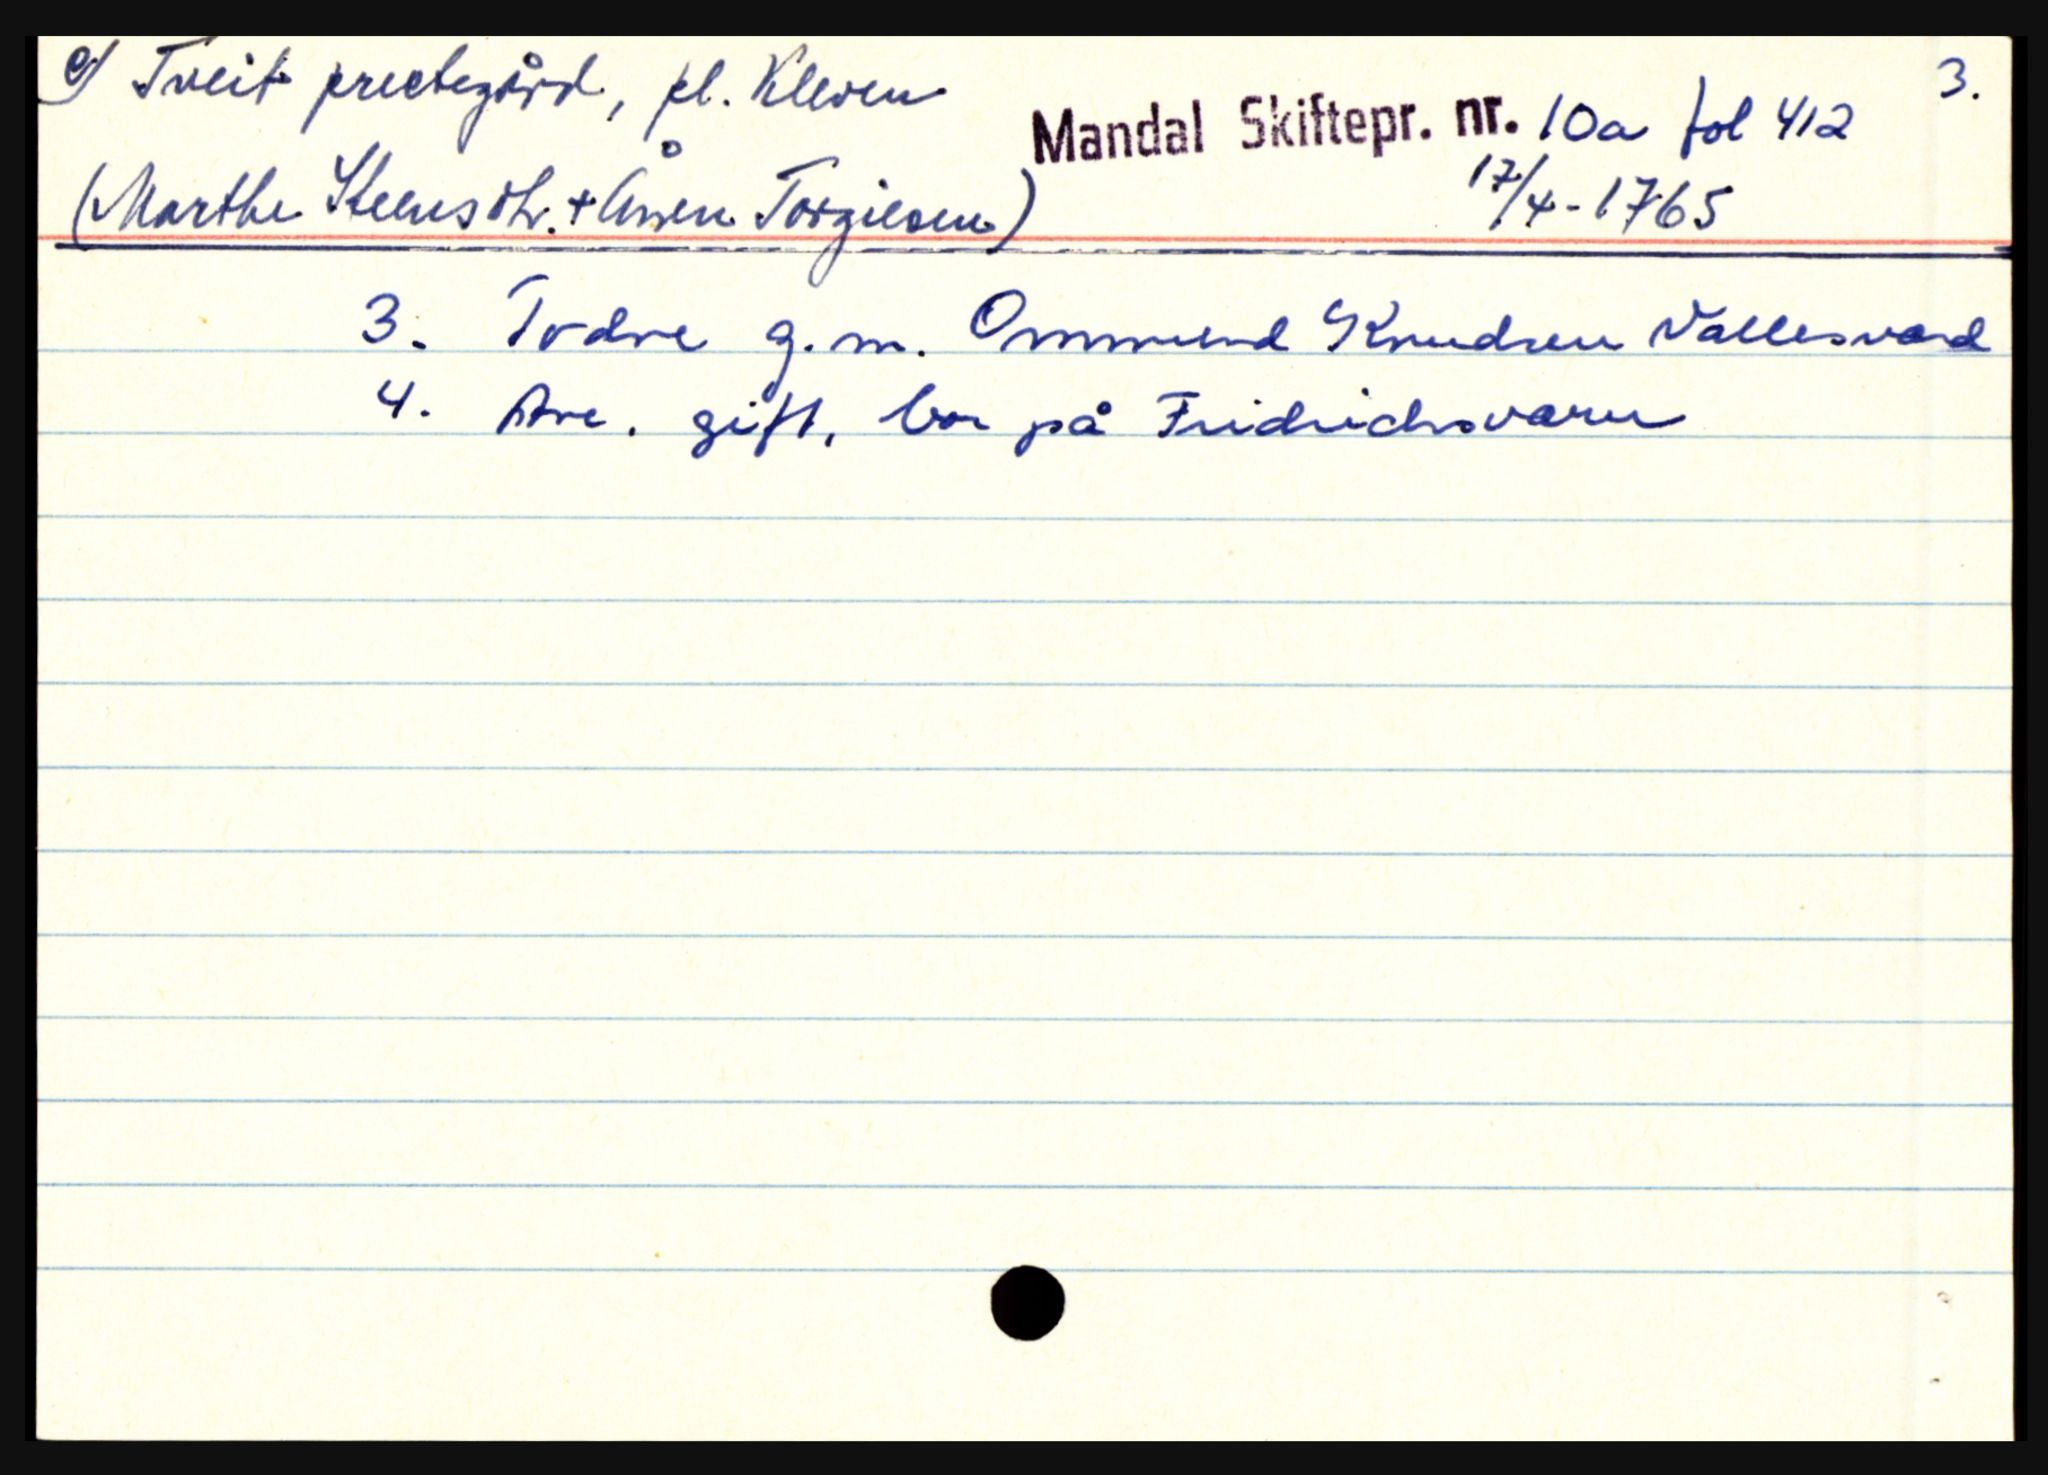 e) Tveit prestegård, pl. Kleven
3.
Mandal Skiftepr. nr. 10a fol 412
(Marthe Steensdtr. + Åwen Torgiesen)
17/4-1765
3. Todne g.m. Ommund Knudsen Vallesværd
4. Ane. gift, bor på Fridrichsværn